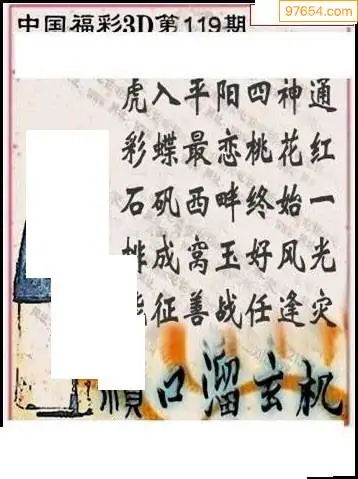 97654.com
中国福彩3D第119期
虎入平阳四神通
彩蝶最恋桃花红
石矶西畔终始一
排成窝玉好风光
能征善战任逢灾
顺口溜玄机